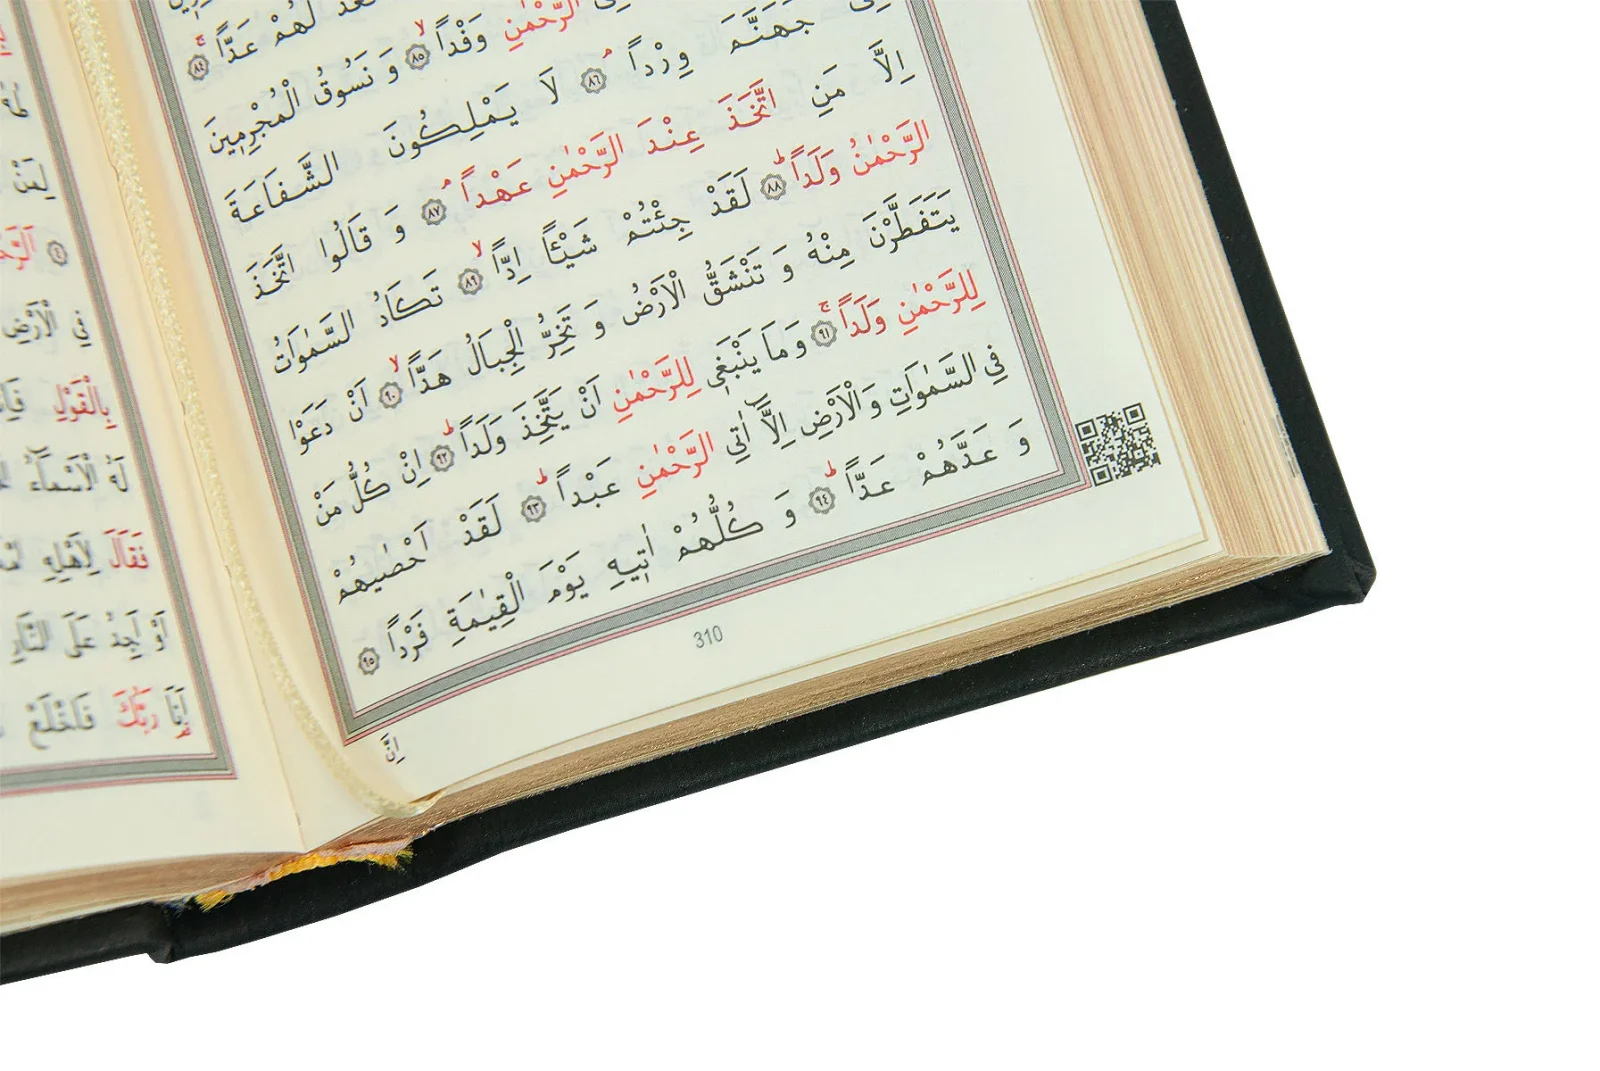 لَهُمْ عَدًّا ٨٤
الرَّحْمٰنِ وَفْداً ٨٥ وَ نَسُوقُ الْمُجْرِمِينَ
جَهَنَّمَ وِرْداً ٨٦ لَا يَمْلِكُونَ الشَّفَاعَةَ
اِلَّا مَنِ اتَّخَذَ عِنْدَ الرَّحْمٰنِ عَهْداً ٨٧ وَ قَالُوا اتَّخَذَ
الرَّحْمٰنُ وَلَداً ٨٨ لَقَدْ جِئْتُمْ شَيْئاً اِدًّا ٨٩ تَكَادُ السَّمٰوَاتُ
يَتَفَطَّرْنَ مِنْهُ وَ تَنْشَقُّ الْاَرْضُ وَ تَخِرُّ الْجِبَالُ هَدًّا ٩٠ اَنْ دَعَوْا
لِلرَّحْمٰنِ وَلَداً ٩١ وَمَا يَنْبَغِي لِلرَّحْمٰنِ اَنْ يَتَّخِذَ وَلَداً ٩٢ اِنْ كُلُّ مَنْ
فِي السَّمٰوَاتِ وَالْاَرْضِ اِلَّا اٰتِي الرَّحْمٰنِ عَبْداً ٩٣ لَقَدْ اَحْصٰيهُمْ
وَ عَدَّهُمْ عَدًّا ٩٤ وَ كُلُّهُمْ اٰتِيهِ يَوْمَ الْقِيٰمَةِ فَرْداً ٩٥
310
اِنَّ
فِي الْاَرْضِ
بِالْقَوْلِ
لَهُ الْاَسْمَاءُ
فَقَالَ لِاَهْلِهِ
اَوْ اَجِدُ عَلَى النَّارِ
اِنِّي اَنَا رَبُّكَ فَاخْلَعْ